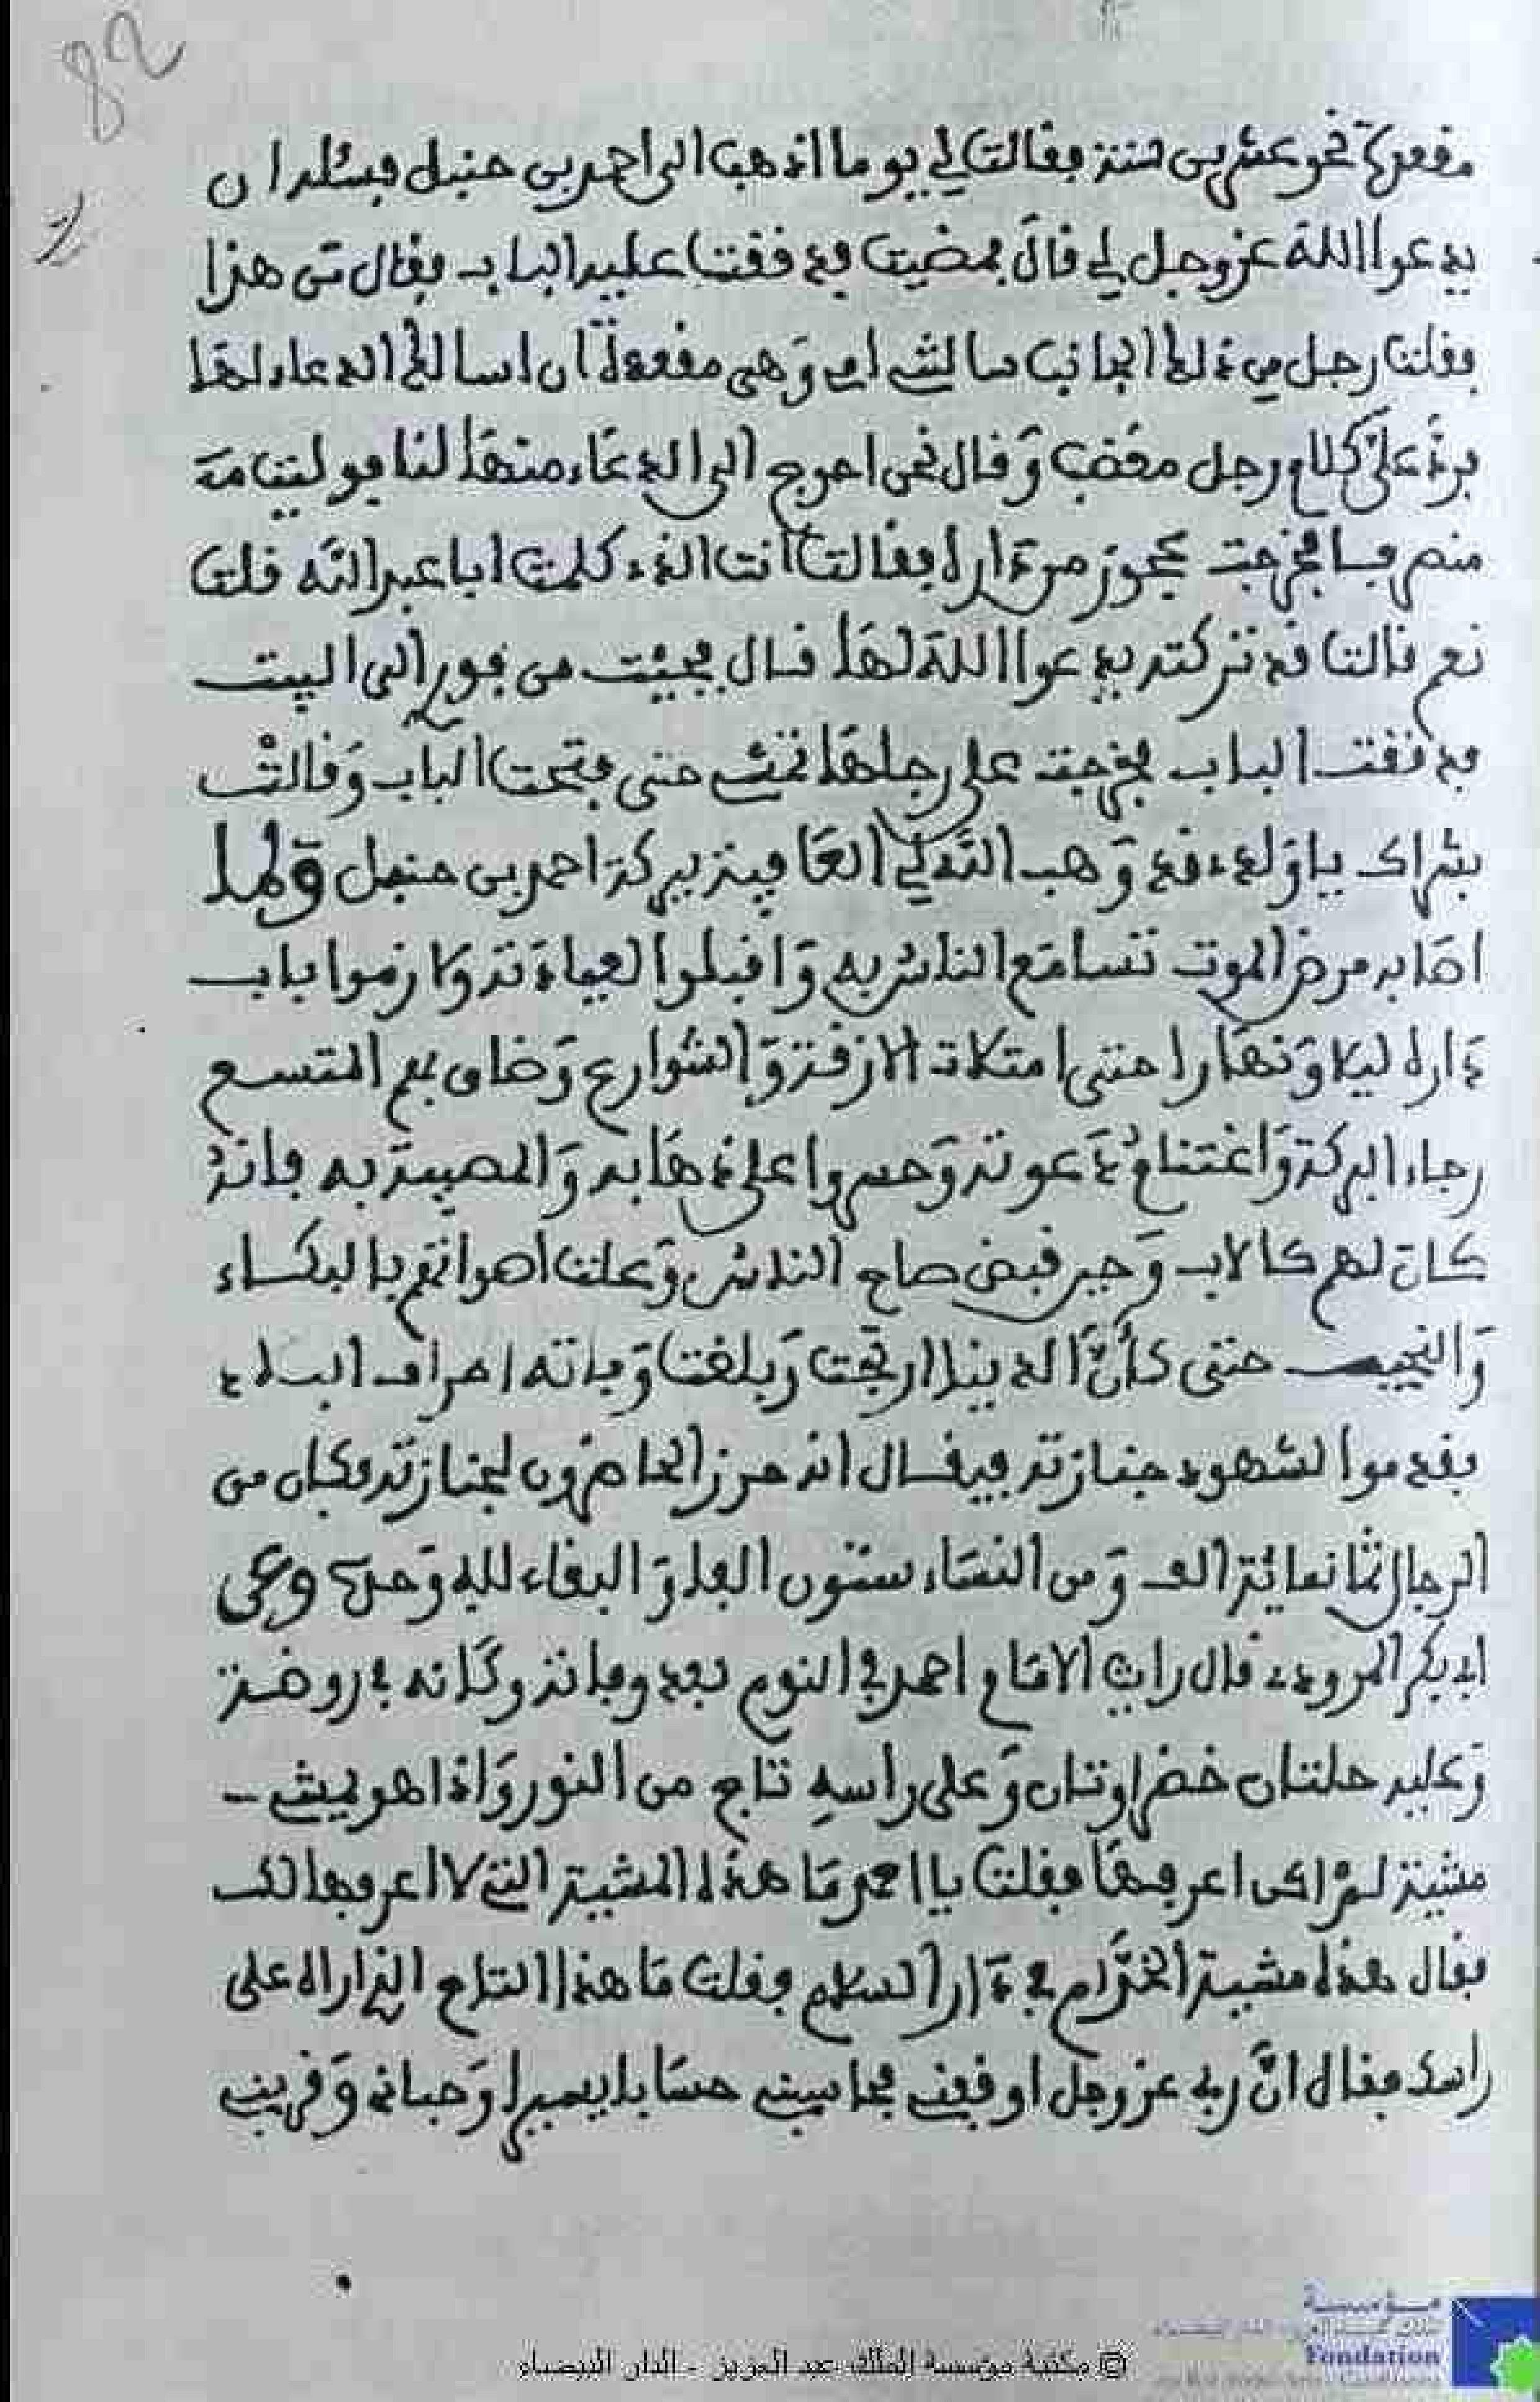 82
مقعدة نحو عشرين سنة فقالت لي يوما اذهب الى احمد بن حنبل فسئله ان
يدعوا الله عز وجل لي قال فمضيت فدققت عليه الباب فقال من هذا
فقلت رجل من ذلك الجانب سالتني امي وهي مقعدة ان اسالك الدعاء لها
فرد علي كلام رجل مغضب وقال نحن احوج الى الدعاء منها لنا فوليت
منصرفا فخرجت عجوز من داره فقالت انت الذي كلمت ابا عبد الله قلت
نعم قالت قد تركته يدعوا الله لها قال فجئت من فوري الى البيت
فدققت الباب فخرجت على رجلها تمشي حتى فتحت الباب وقالت
بشراك يا ولدي قد وهب الله لي العافية ببركة احمد بن حنبل ولما
اصابه مرض الموت تسامع الناس به واقبلوا لعيادته ولازموا باب
داره ليلا ونهارا حتى امتلات الازقة والشوارع وضاق بهم المتسع
رجاء البركة واغتنام دعوته وحسروا على ذهابه والمصيبة به فانه
كان لهم كالاب وحين قبض صاح الناس وعلت اصواتهم بالبكاء
والنحيب حتى كأن الدنيا ارتجت وبلغت وفاته اطراف البلاد
فقدموا لشهود جنازته فيقال انه حرز الحاضرون لجنازته فكان من
الرجال ثمانمائة الف ومن النساء ستون الفا والبقاء لله وحده وعن
ابي بكر المروذي قال رايت الامام احمد في النوم بعد وفاته وكانه في روضة
وعليه حلتان خضراوتان وعلى راسه تاج من النور واذا هو يمشي
مشية لم اكن اعرفها فقلت يا احمد ما هذه المشية التي لا اعرفها لك
فقال هذه مشية الخدام في دار السلام فقلت ما هذا التاج الذي اراه على
راسك فقال ان ربي عز وجل اوقفني فحاسبني حسابا يسيرا وحباني وقربني
© مكتبة مؤسسة الملك عبد العزيز - الدار البيضاء
مؤسسة
Fondation